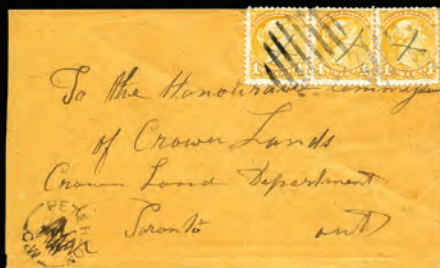 To the Honourable Commiss
of Crown Lands
Crown Land Department
Toronto ont